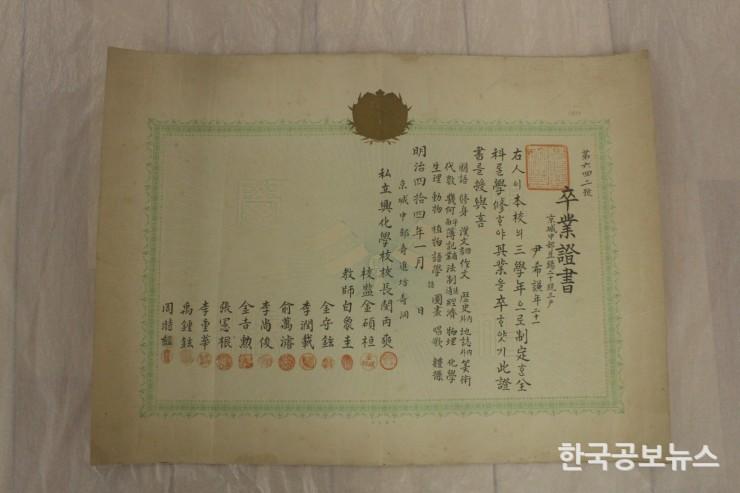 第六四二號
卒業證書
京城中部
尹希謙年二十一
右人이本校의三學年으로制定한全
科를學修하야其業을卒하얏기此證
書를授與홈
國語 修身 漢文 作文 歷史 地誌 算術
代數 幾何 簿記 法制 經濟 物理 化學
生理 動物 植物 語學 圖畵 唱歌 體操
明治四拾四年一月 日
京城中部壽進坊壽洞
私立興化學校校長閔丙奭
校監金碩桓
教師白象圭
金守鉉
李潤載
兪萬濬
李尚俊
金吉勲
張憲根
李重華
禹鍾鉉
周時經
한국공보뉴스